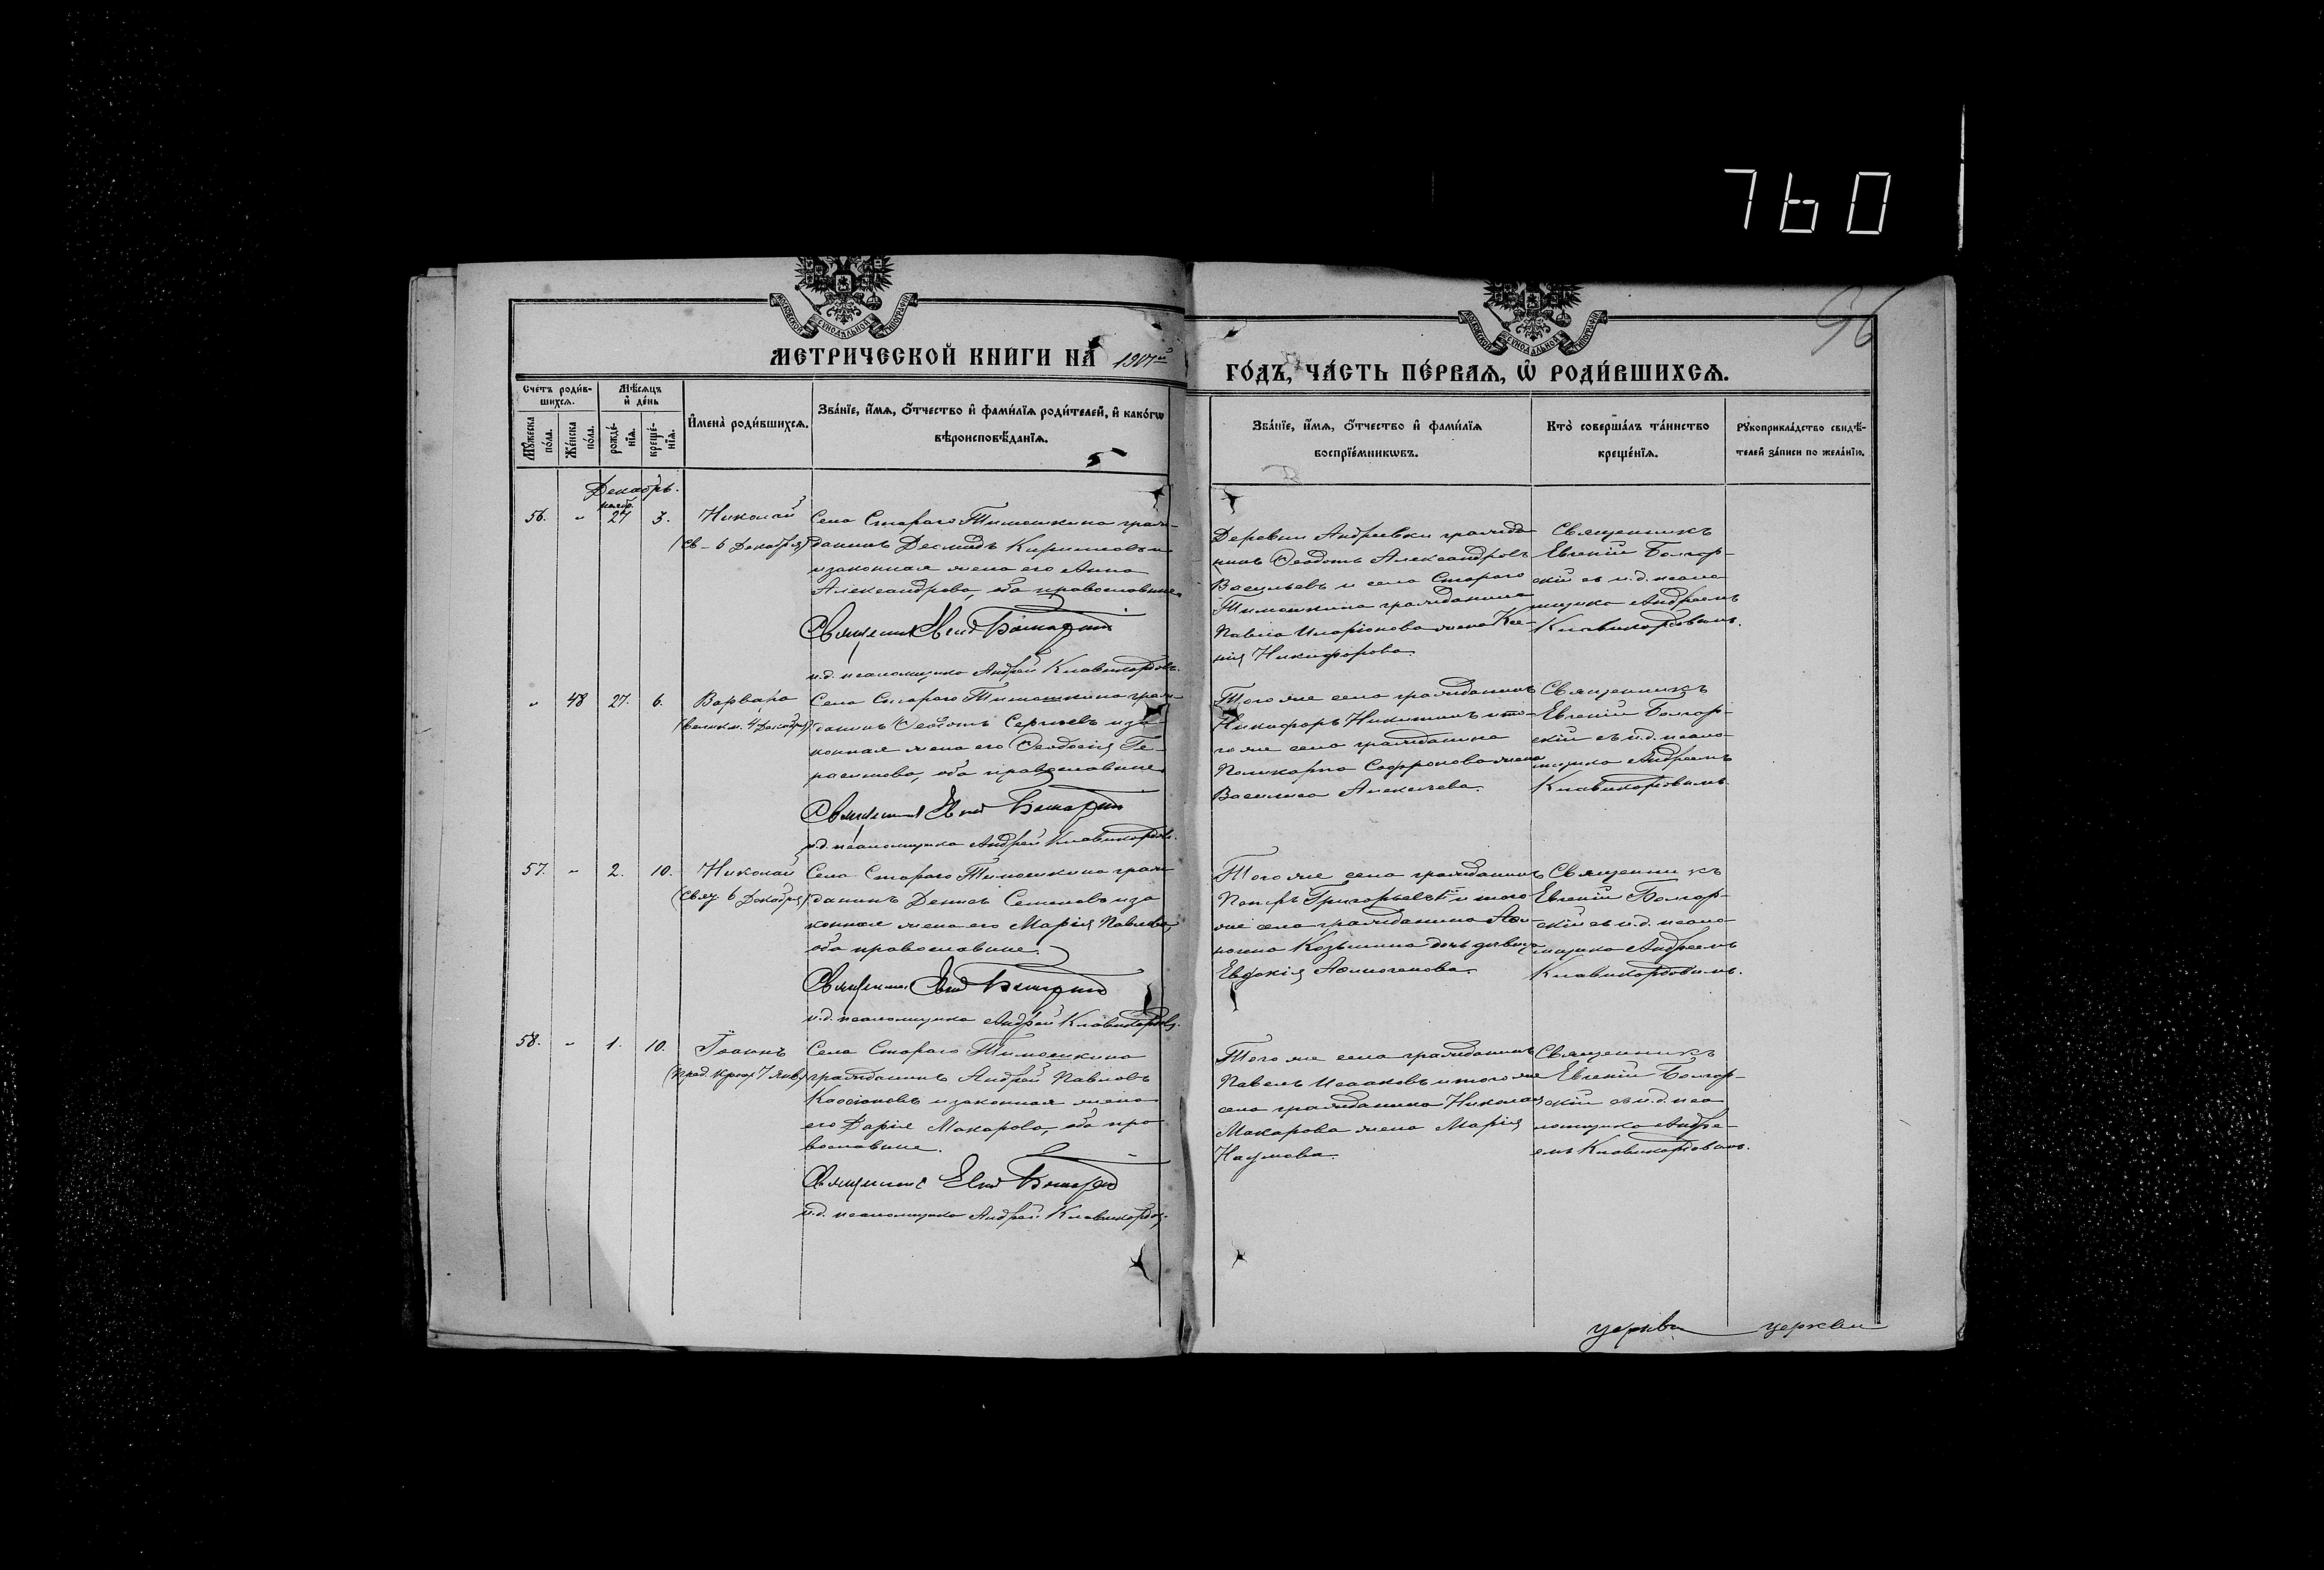 760
96
МОСКОВСКОЙ СѴНОДАЛЬНОЙ ТИПОГРАФІИ
МОСКОВСКОЙ СѴНОДАЛЬНОЙ ТИПОГРАФІИ
МЕТРИЧЕСКОЙ КНИГИ НА 1917й
ГО́ДЪ, ЧА́СТЬ ПЕ́РВАѦ, Ѡ҆ РОДИ́ВШИХСѦ.
Сче́тъ роди́в-
шихсѧ.
Мѣ́сѧцъ
и҆ де́нь
Мꙋ́жеска
по́ла.
Же́нска
по́ла.
рожде́-
нїѧ.
креще́-
нїѧ.
И҆мена̀ роди́вшихсѧ.
Зва́нїе, и҆́мѧ, ѻ҆́тчество и҆ фами́лїѧ роди́телей, и҆ како́гѡ
вѣроисповѣ́данїѧ.
Зва́нїе, и҆́мѧ, ѻ҆́тчество и҆ фами́лїѧ
воспрїе́мникѡвъ.
Кто̀ соверша́лъ та́инство
креще́нїѧ.
Рꙋкоприкла́дство свидѣ́-
телей за́писи по жела́нїю.
Декабрь.
56. " Нояб. 27 3. Николай
(Св. 6 Декабря)
Села Стараго Тимошкина граж-
данинъ Кирилловъ и
законная жена его Анна
Александрова, оба православные
Священникъ
и.д. псаломщика Андрей Клавикордовъ.
Деревни Андреевки гражда
нинъ Ѳеодотъ Александровъ
Васильевъ и села Стараго
Тимошкина гражданина
Павла Иларіонова жена Ксе-
нія Никифорова.
Священникъ
Евгеній Болгар-
скій съ и.д. псало
мщика Андреемъ
Клавикордовымъ.
" 48 27. 6. Варвара
(Великм. 4 Декабря)
Села Стараго Тимошкина граж-
данинъ Ѳеодотъ Сергѣевъ и за-
конная жена его Ѳеодосія Ге-
расимова, оба православные
Священникъ
и.д. псаломщика Андрей Клавикордовъ.
Того же села гражданинъ
Никифоръ Никитинъ и то-
го же села гражданина
Поликарпа Софронова жена
Василиса Алексѣева.
Священникъ
Евгеній Болгар-
скій съ и.д. псало-
мщика Андреемъ
Клавикордовымъ
57. " 2. 10. Николай
(Свят. 6 Декабря)
Села Стараго Тимошкина граж-
данинъ Денисъ Семеновъ и за
конная жена его Марія Павлова,
оба православные.
Священникъ
и.д. псаломщика Андрей Клавикордовъ.
Того же села гражданинъ
Григорьевъ и того
же села гражданина
Козьмина дочь дѣвица
Евдокія
Священникъ
Евгеній Болгар-
скій съ и.д. псало
мщика Андреемъ
Клавикордовымъ.
58. " 1. 10. Іоаннъ
(Пред. Крест. 7 Янв.)
Села Стараго Тимошкина
гражданинъ Андрей Павловъ
Касьяновъ и законная жена
его Дарія Макарова, оба пра
вославные.
Священникъ
и.д. псаломщика Андрей Клавикордовъ.
Того же села гражданинъ
Павелъ Исааковъ и того же
села гражданина Николая
Макарова жена Марія
Наумова.
Священникъ
Евгеній Болгар-
скій съ и.д. пса
ломщика Андре-
емъ Клавикордовымъ.
церкви церкви